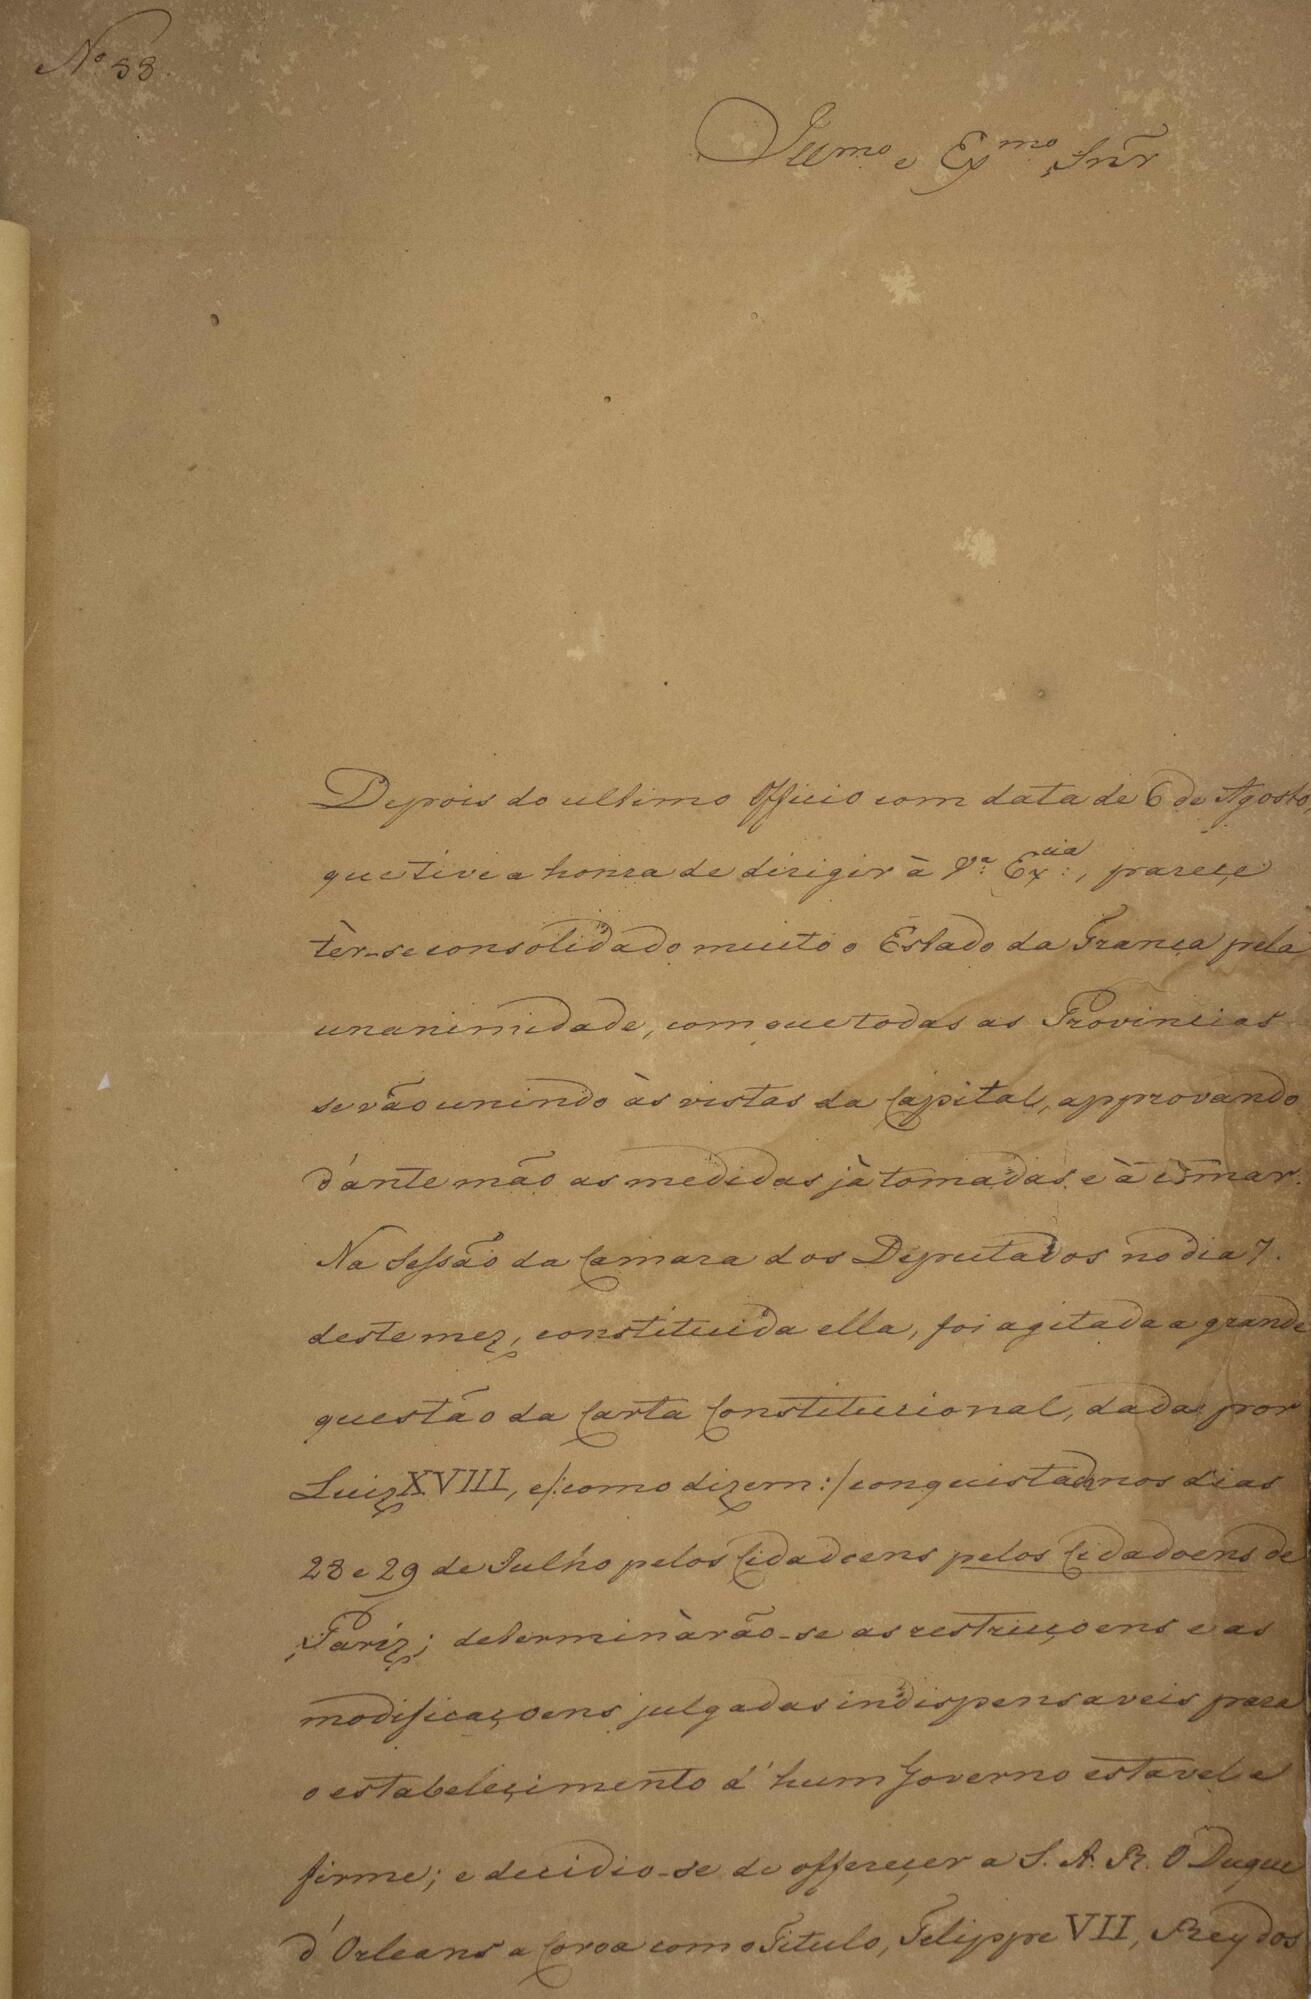 Nº 38.
Illmo e Exmo Snr̃
Depois do ultimo Officio com data de 6 de Agosto,
que tive a honra de dirigir à Vª. Excia:, pareçe
tèr-se consolidado muito o Estado da França pela
unanimidade, com que todas as Provincias
se vão unindo às vistas da Capital, approvando
d'ante mão as medidas jà tomadas e à tomar.
Na Sessão da Camara dos Deputados no dia 7.
deste mez, constituida ella, foi agitada a grande
questão da Carta Constitucional, dada por
Luiz XVIII, e /: como dizem :/ conquistada nos dias
28 e 29 de Julho pelos Cidadoens pelos Cidadoens de
Pariz; determinàrão-se as restricçoens e as
modificaçoens julgadas indispensaveis para
o estabeleçimento d'hum Governo estavel e
firme; e decidio-se de offereçer a S. A. R. O Duque
d'Orleans a Coroa com o Titulo, Felippe VII, Rey dos